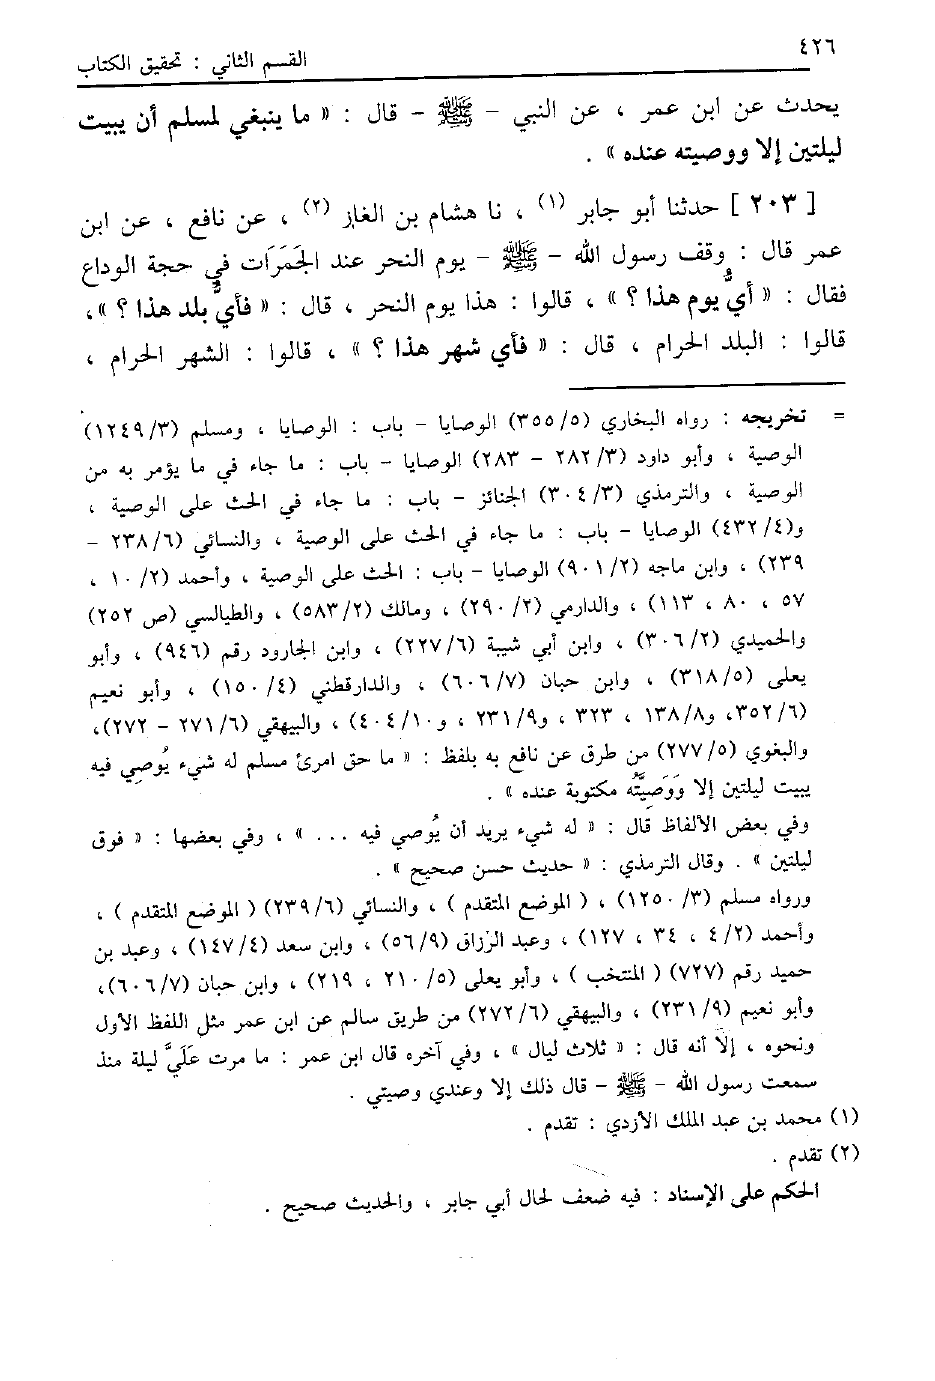 ٤٢٦
القسم الثاني : تحقيق الكتاب
يحدث عن ابن عمر ، عن النبي - ﷺ - قال : « ما ينبغي لمسلم أن يبيت
ليلتين إلا ووصيته عنده » .
[ ٢٠٣ ] حدثنا أبو جابر (١) ، نا هشام بن الغاز (٢) ، عن نافع ، عن ابن
عمر قال : وقف رسول الله - ﷺ - يوم النحر عند الجَمَرَات في حجة الوداع
فقال : « أيُّ يوم هذا ؟ » ، قالوا : هذا يوم النحر ، قال : « فأيُّ بلد هذا ؟ »،
قالوا : البلد الحرام ، قال : « فأي شهر هذا ؟ » ، قالوا : الشهر الحرام ،
= تخريجه : رواه البخاري (٣٥٥/٥) الوصايا - باب : الوصايا ، ومسلم (١٢٤٩/٣)
الوصية ، وأبو داود (٢٨٢/٣ - ٢٨٣) الوصايا - باب : ما جاء في ما يؤمر به من
الوصية ، والترمذي (٣٠٤/٣) الجنائز - باب : ما جاء في الحث على الوصية ،
و(٤٣٢/٤) الوصايا - باب : ما جاء في الحث على الوصية ، والنسائي (٢٣٨/٦ -
٢٣٩) ، وابن ماجه (٩٠١/٢) الوصايا - باب : الحث على الوصية ، وأحمد (١٠/٢ ،
٥٧ ، ٨٠ ، ١١٣) ، والدارمي (٢٩٠/٢) ، ومالك (٥٨٣/٢) ، والطيالسي (ص ٢٥٢)
والحميدي (٣٠٦/٢) ، وابن أبي شيبة (٢٢٧/٦) ، وابن الجارود رقم (٩٤٦) ، وأبو
يعلى (٣١٨/٥) ، وابن حبان (٦٠٦/٧) ، والدارقطني (١٥٠/٤) ، وأبو نعيم
(٣٥٢/٦، و١٣٨/٨ ، ٣٢٣ ، و٢٣١/٩ ، و٤٠٤/١٠) ، والبيهقي (٢٧١/٦ - ٢٧٢)،
والبغوي (٢٧٧/٥) من طرق عن نافع به بلفظ : « ما حق امرئ مسلم له شيء يُوصِي فيه
يبيت ليلتين إلا وَوَصِيَّتُه مكتوبة عنده » .
وفي بعض الألفاظ قال : « له شيء يريد أن يُوصي فيه ... » ، وفي بعضها : « فوق
ليلتين » . وقال الترمذي : « حديث حسن صحيح » .
ورواه مسلم (١٢٥٠/٣) ، ( الموضع المتقدم ) ، والنسائي (٢٣٩/٦) ( الموضع المتقدم ) ،
وأحمد (٤/٢ ، ٣٤ ، ١٢٧) ، وعبد الرزاق (٥٦/٩) ، وابن سعد (١٤٧/٤) ، وعبد بن
حميد رقم (٧٢٧) ( المنتخب ) ، وأبو يعلى (٢١٠/٥ ، ٢١٩) ، وابن حبان (٦٠٦/٧)،
وأبو نعيم (٢٣١/٩) ، والبيهقي (٢٧٢/٦) من طريق سالم عن ابن عمر مثل اللفظ الأول
ونحوه ، إلّا أنه قال : « ثلاث ليال » ، وفي آخره قال ابن عمر : ما مرت عَلَيَّ ليلة منذ
سمعت رسول الله - ﷺ - قال ذلك إلا وعندي وصيتي .
(١) محمد بن عبد الملك الأزدي : تقدم .
(٢) تقدم .
الحكم على الإسناد : فيه ضعف لحال أبي جابر ، والحديث صحيح .